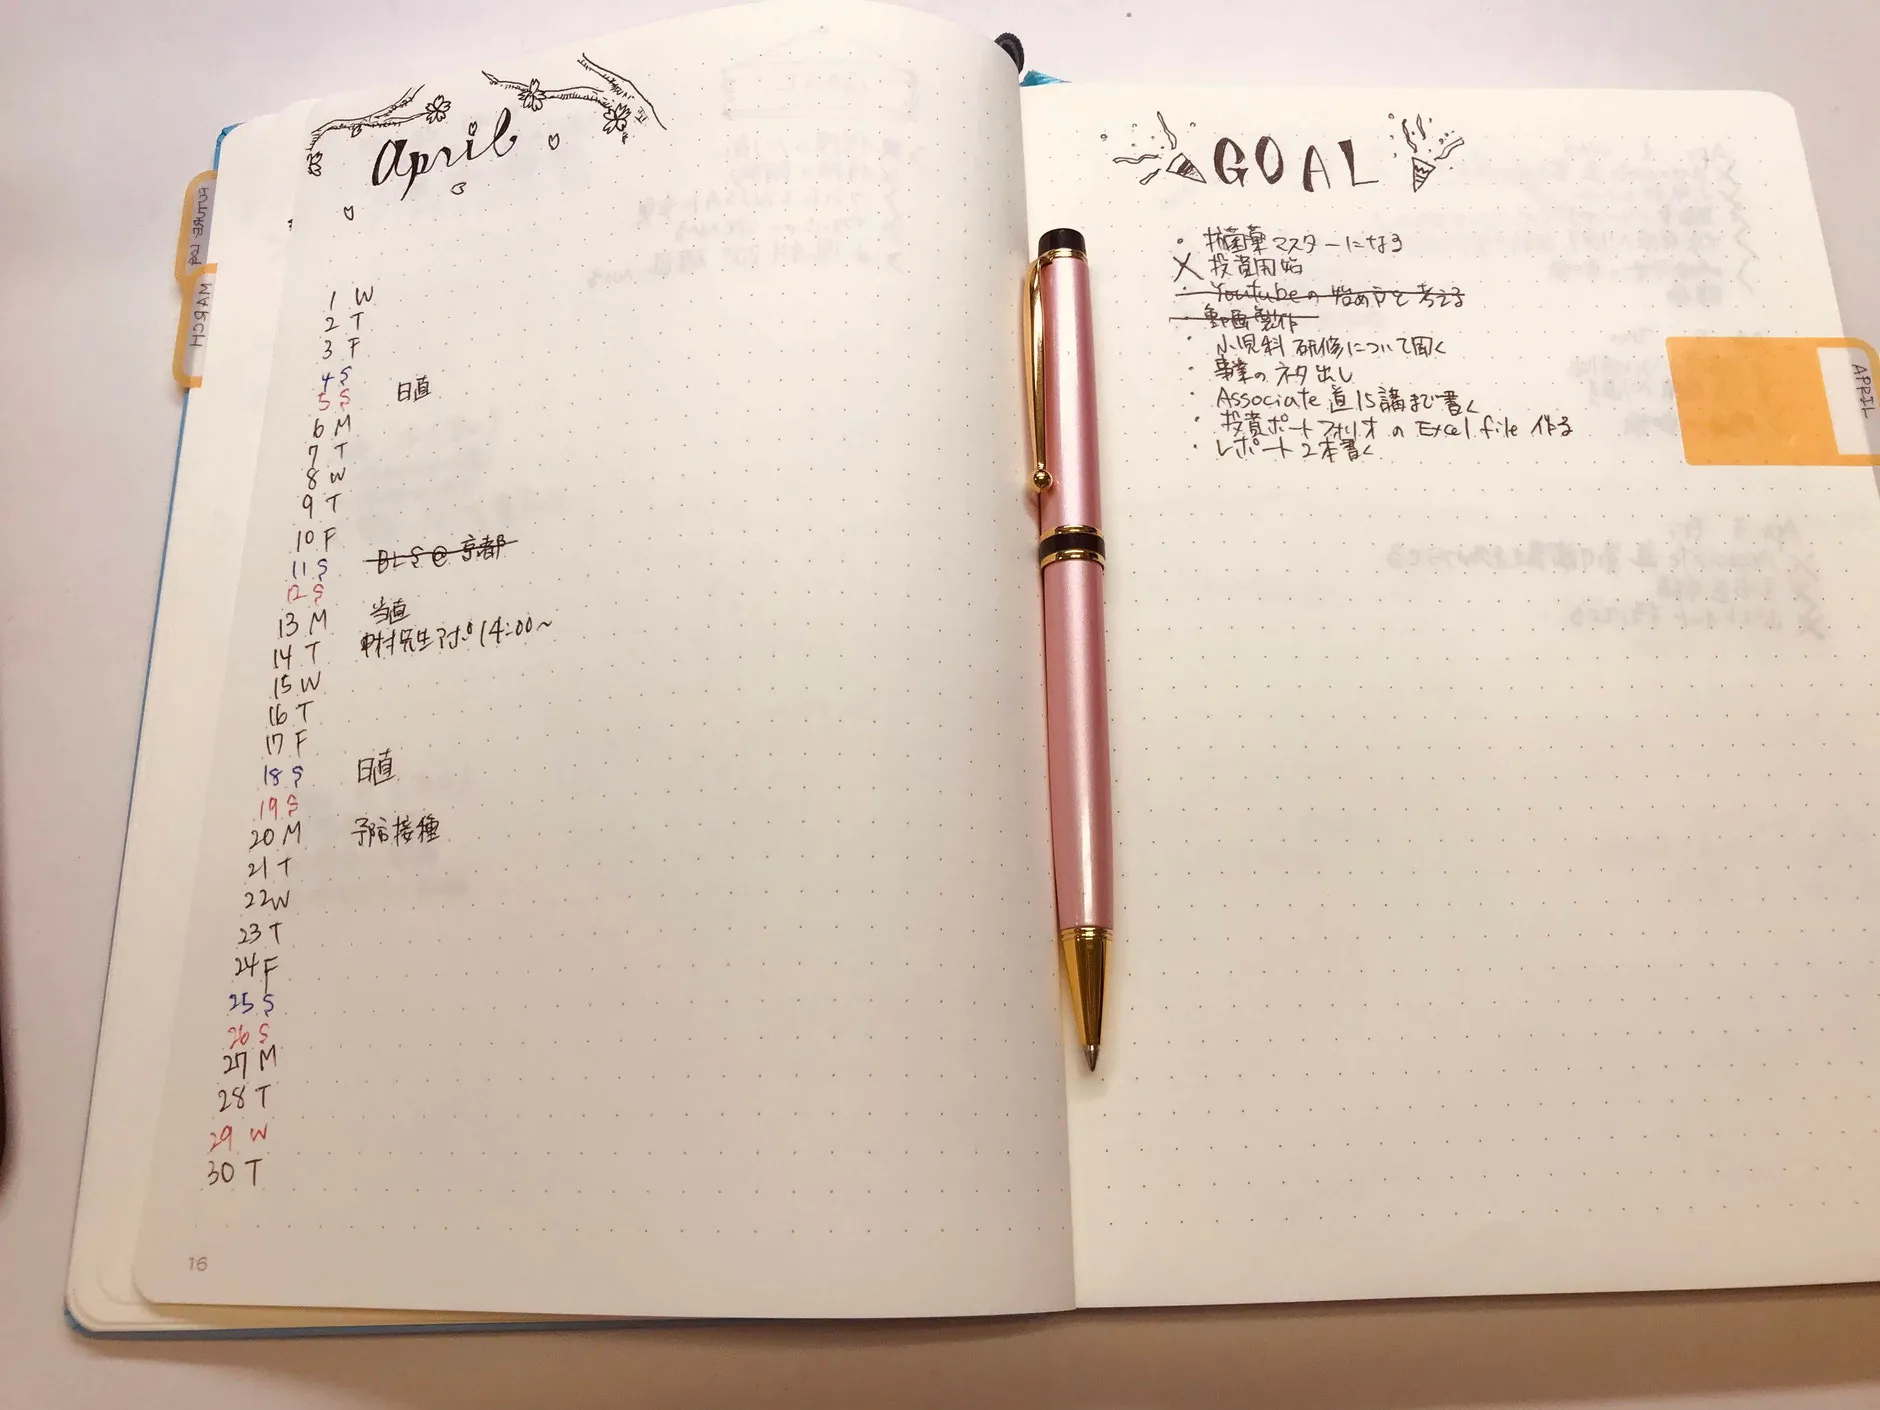 April
FUTURE LOG
MARCH
1 W
2 T
3 F
4 S 日直
5 S
6 M
7 T
8 W
9 T
10 F
11 S BLS@京都
12 S
13 M 当直
14 T 中村先生アポ 14:00~
15 W
16 T
17 F
18 S 日直
19 S
20 M 予防接種
21 T
22 W
23 T
24 F
25 S
26 S
27 M
28 T
29 W
30 T
16
GOAL
・ 抗菌薬マスターになる
× 投資開始
・ Youtubeの始め方を考える
・ 動画製作
・ 小児科研修について聞く
・ 事業のネタ出し
・ Associate 道15講まで書く
・ 投資ポートフォリオのExcel file 作る
・ レポート2本書く
APRIL